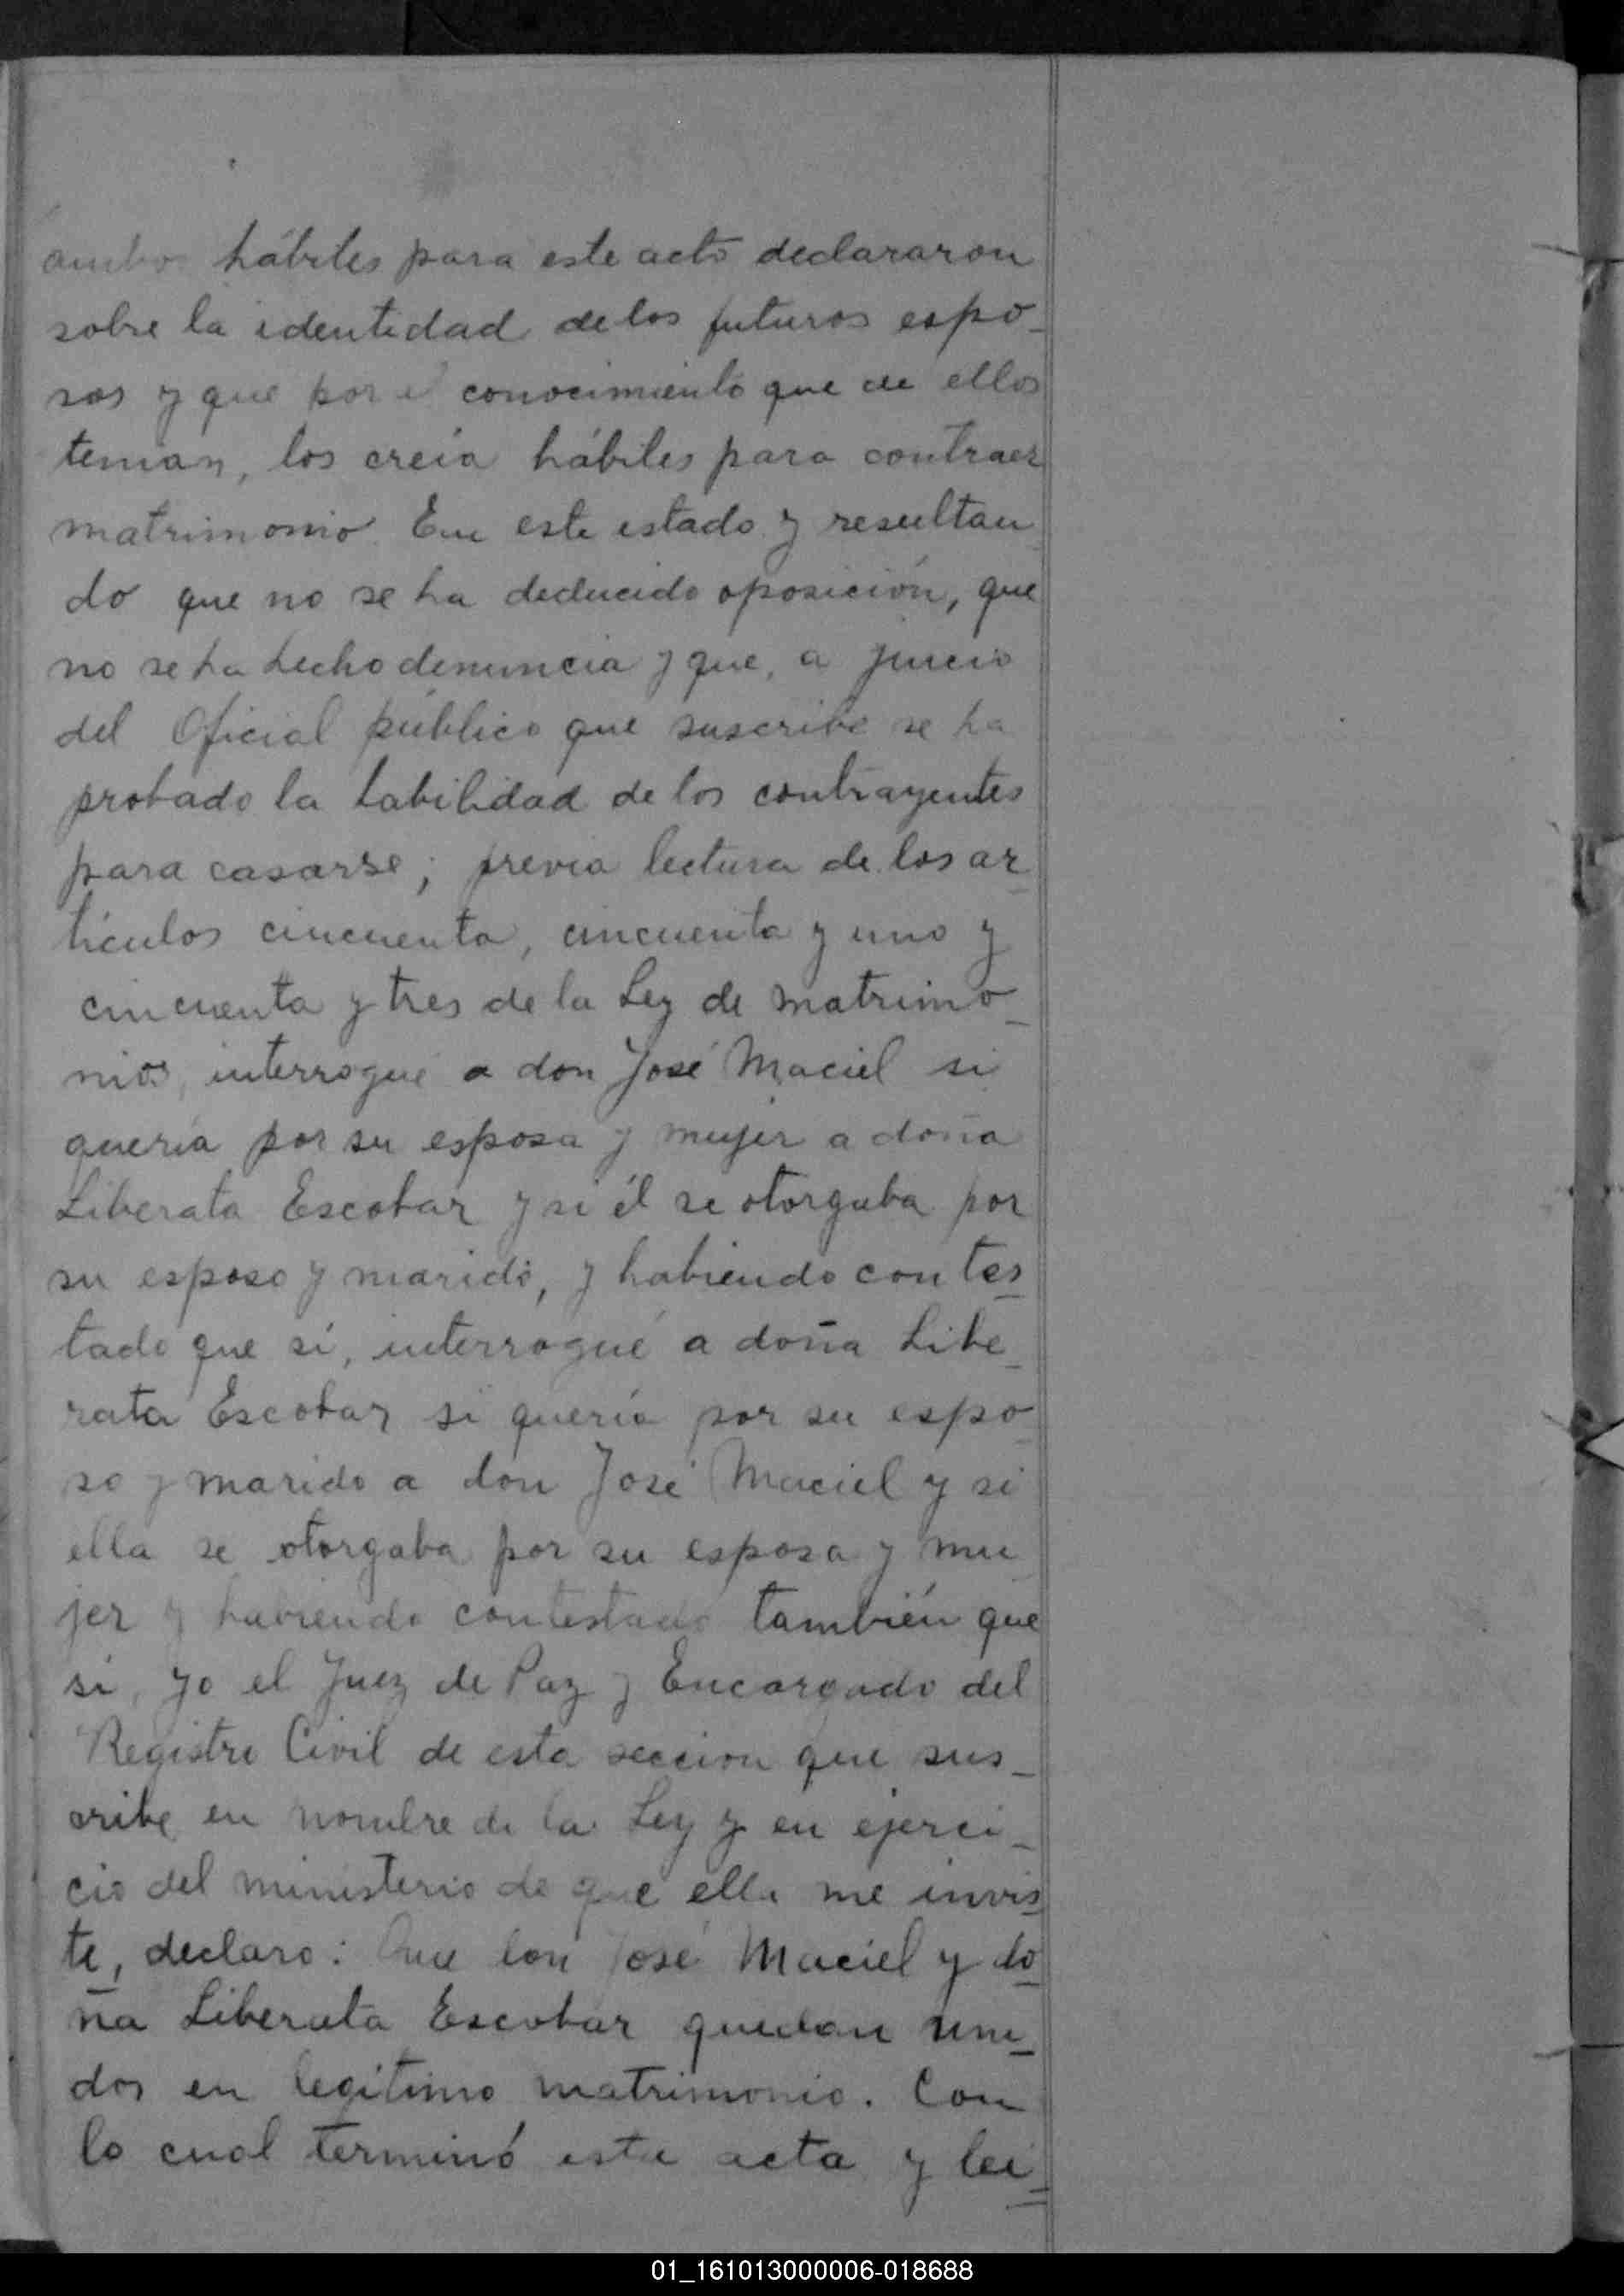 ambos hábiles para este acto declararon
sobre la identidad de los futuros espo-
sos y que por el conocimiento que de ellos
tenian, los creía hábiles para contraer
matrimonio. En este estado y resultan
do que no se ha deducido oposición, que
no se ha hecho denuncia y que, a juicio
del Oficial público que suscribe se ha
probado la habilidad de los contrayentes
para casarse; previa lectura de los ar-
tículos cincuenta, cincuenta y uno y
cincuenta y tres de la Ley de matrimo-
nios, interrogué a don José Maciel si
quería por su esposa y mujer a doña
Liberata Escobar y si él se otorgaba por
su esposo y marido, y habiendo contes-
tado que sí, interrogué a doña Libe-
rata Escobar si quería por su espo-
so y marido a don José Maciel y si
ella se otorgaba por su esposa y mu-
jer y habiendo contestado también que
si, yo el Juez de Paz y Encargado del
Registro Civil de esta seccion que sus-
cribe en nombre de la Ley y en ejerci-
cio del ministerio de que ella me invis-
te, declaro: Que don José Maciel y do-
ña Liberata Escobar quedan uni-
dos en legítimo matrimonio. Con
lo cual terminó esta acta y lei-
01_161013000006-018688